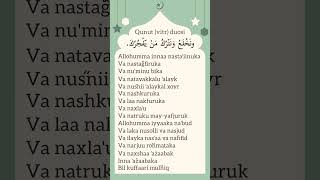 Qunut (vitr) duosi
وَنَخْلَعُ وَنَتْرُكُ مَنْ يَفْجُرُكَ.
Allohumma innaa nasta'iinuka
Va nastağfiruka
Va nu'minu bika
Va natavakkalu 'alayk
Va nusnii 'alaykal xoyr
Va nashkuruka
Va laa nakfuruka
Va naxla'u
Va natruku may-yafjuruk
Allohumma iyyaaka na'bud
Va laka nusolli va nasjud
Va ilayka nas'aa va nafifid
Va narjuu rohmataka
Va naxshaa 'azaabak
Inna 'azaabaka
Bil kuffaari mulhiq